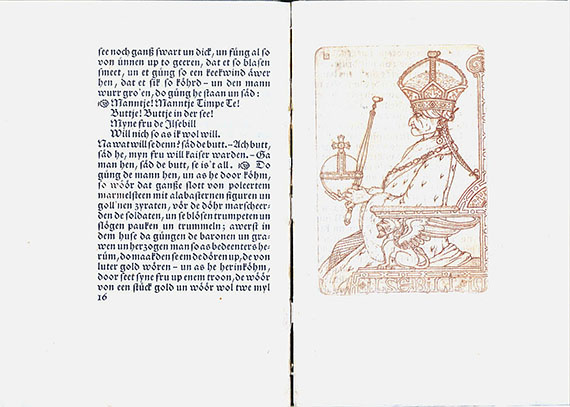 see noch ganß swart un dick, un füng al so
von ünnen up to geeren, dat et so blasen
smeet, un et güng so een keekwind äwer
hen, dat et sik so köhrd – un den mann
wurr gro'en, do güng he staan un säd:
Manntje! Manntje Timpe Te!
Buttje! Buttje in der see!
Myne fru de Jlsebill
Will nich so as ik wol will.
Na wat will se denn? säd de butt. – Ach butt,
säd he, myn fru will kaiser warden. – Ga
man hen, säd de butt, se is't all. Do
güng de mann hen, un as he door köhm,
so wöör dat ganße slott von poleertem
marmelsteen mit alabasternen figuren un
goll'nen zyraten, vör de döhr marscheer-
den de soldaten, un se blösen trumpeten un
slögen pauken un trummeln; awerst in
dem huse da güngen de baronen un gra-
wen un herzogen man so as bedeenters he-
rüm, do maakden seem de dören up, de von
luter gold wören – un as he herinköhm,
door seet syne fru up enem troon, de wöör
von een stück gold un wöör wol twe myl
16
ILSEBILL